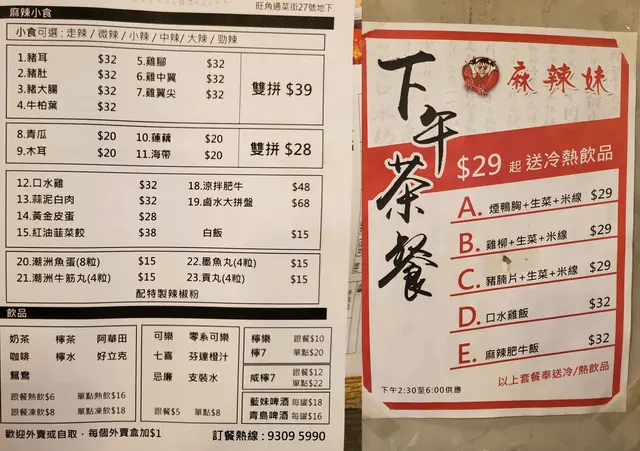 旺角通菜街27號地下
麻辣小食
小食可選 : 走辣 / 微辣 / 小辣 / 中辣 / 大辣 / 勁辣
1.豬耳 $32 5.雞腳 $32
2.豬肚 $32 6.雞中翼 $32
3.豬大腸 $32 7.雞翼尖 $32
4.牛柏葉 $32
雙拼 $39
8.青瓜 $20 10.蓮藕 $20
9.木耳 $20 11.海帶 $20
雙拼 $28
12.口水雞 $32 18.涼拌肥牛 $48
13.蒜泥白肉 $32 19.鹵水大拼盤 $68
14.黃金皮蛋 $28
15.紅油韮菜餃 $38 白飯 $15
20.潮洲魚蛋(8粒) $15 22.墨魚丸(4粒) $15
21.潮洲牛筋丸(4粒) $15 23.貢丸(4粒) $15
配特製辣椒粉
飲品
奶茶 檸茶 阿華田
咖啡 檸水 好立克
鴛鴦
跟餐熱飲$6 單點熱飲$16
跟餐凍飲$8 單點凍飲$18
可樂 零系可樂
七喜 芬達橙汁
忌廉 支裝水
跟餐$5 單點$8
檸樂 跟餐$10
檸7 單點$20
咸檸7 跟餐$12
單點$22
藍妹啤酒 每罐$18
青島啤酒 每罐$16
歡迎外賣或自取，每個外賣盒加$1 訂餐熱線 : 9309 5990
下午茶餐
麻辣妹
$29 起 送冷熱飲品
A. 煙鴨胸+生菜+米線 $29
B. 雞柳+生菜+米線 $29
C. 豬腩片+生菜+米線 $29
D. 口水雞飯 $32
E. 麻辣肥牛飯 $32
以上套餐奉送冷/熱飲品
下午2:30至6:00供應